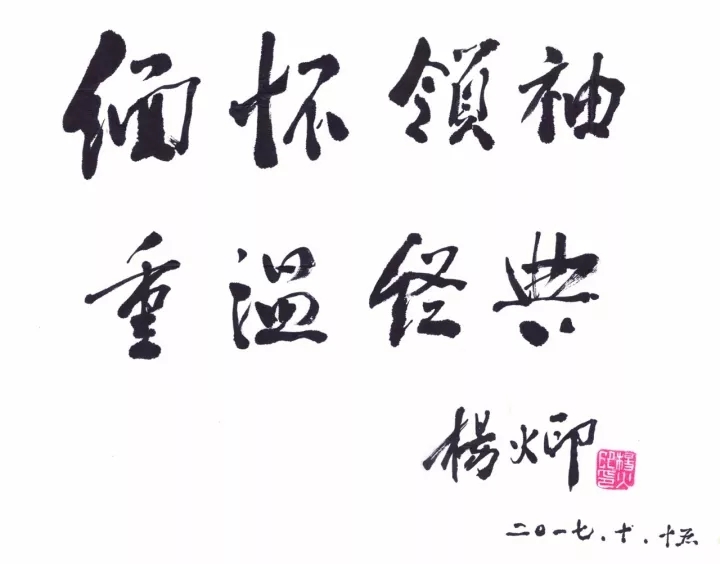 缅怀领袖
重温经典
楊火印
二〇一七.十.十五